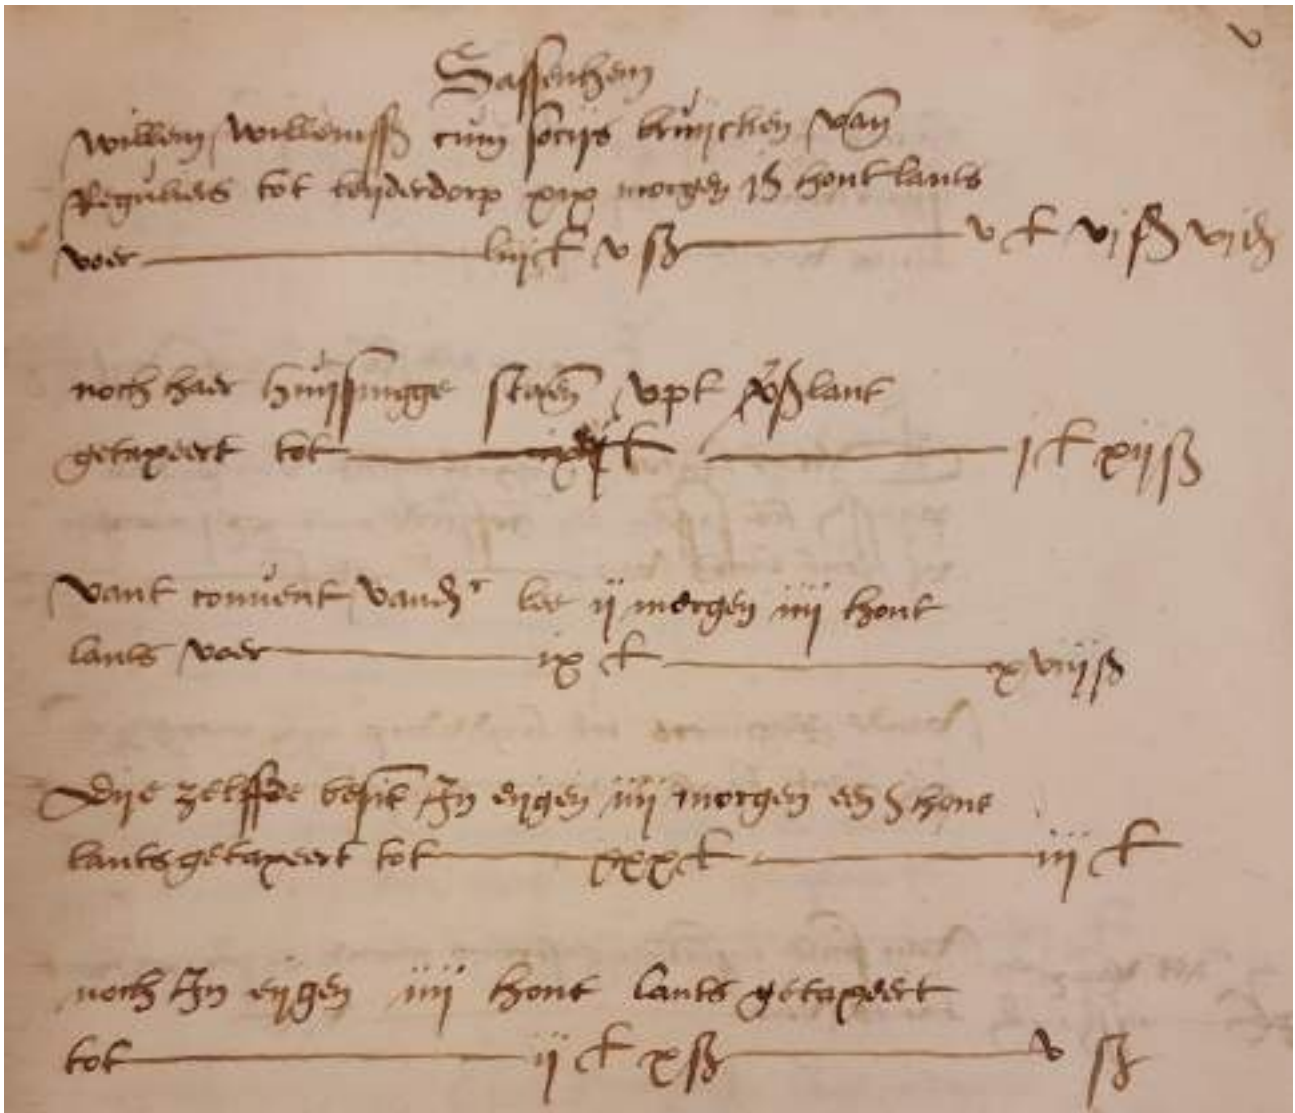 v
Sassenhem
Willem Willemss cum socijs bruijcken van
Reguliers tot leijderdorp xix morgen hont lants
voer liij £ v ß v £ vj ß vj d
noch haer huijsinge staen upt lant
getaxeert tot j £ xij ß
Vant convent vander lee ij morgen iiij hont
lants voer ix £ xviij ß
Dije zelffde besit In eijgen iiij morgen een hont
lants getaxeert tot xxx £ iij £
noch In eijgen iiij hont lants getaxeert
tot ij £ x ß v ß